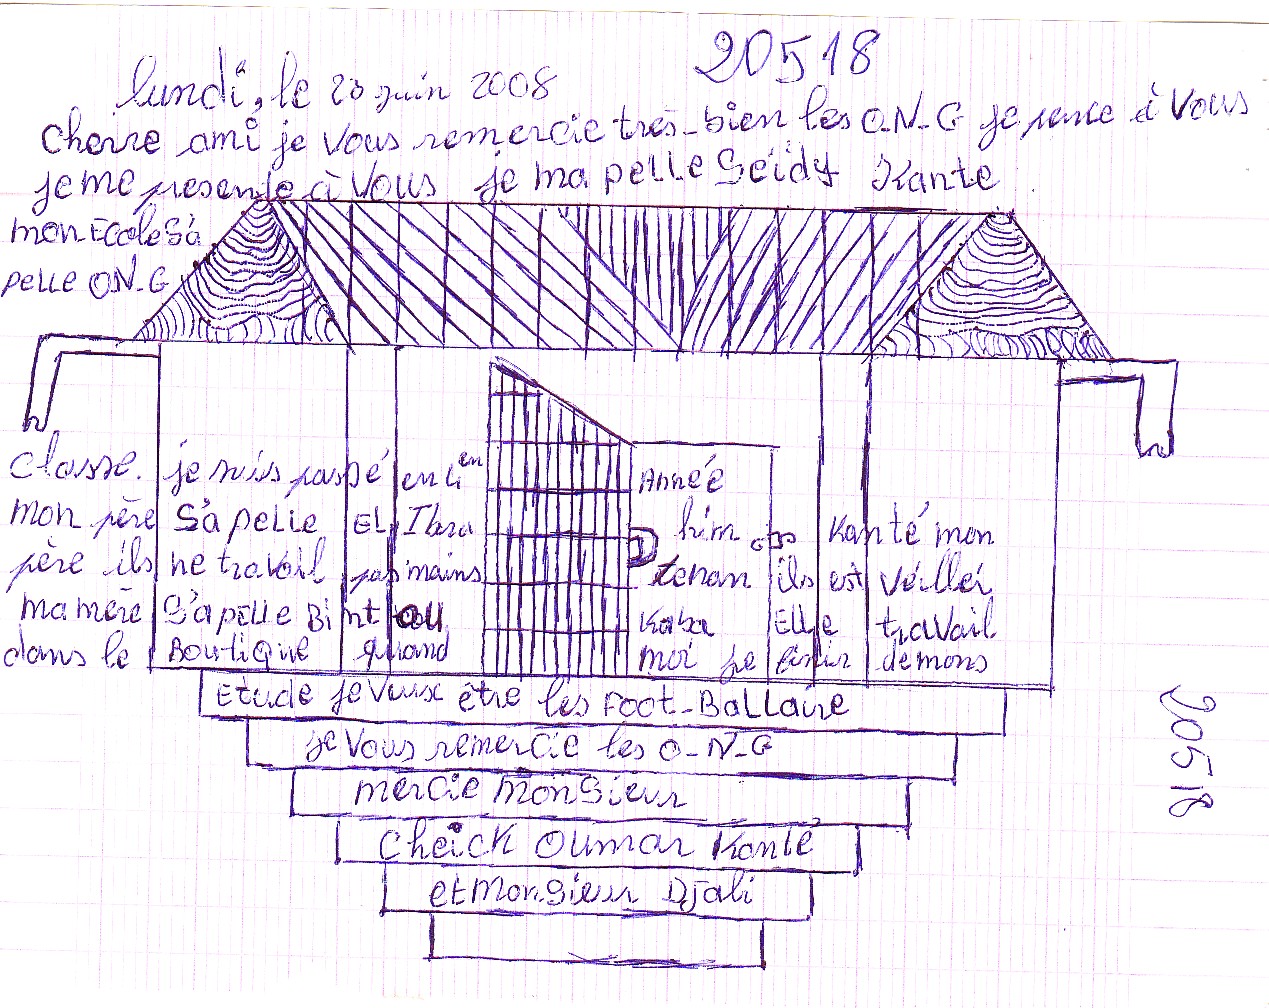 20518
lundi, le 23 juin 2008
cheire ami je vous remercie tres-bien les O.N-G je pence à Vous
je me presente à Vous je ma pelle Seidy Kante
mon Ecole s'a
pelle O.N-G
classe. je suis passé en 4ien Année
mon père s'apelle EL Ibra him Kanté mon
père ils ne travail pas mains tenan ils est véillei
ma mère s'apelle Bint ou Kaba Elle travail
dans le Boutique quand moi je finir demons
Etude je veux être les Foot-Ballaire
je Vous remercie les O-N-G
mercie monsieur
Cheick Oumar Kanté
et Monsieur Djali
20518